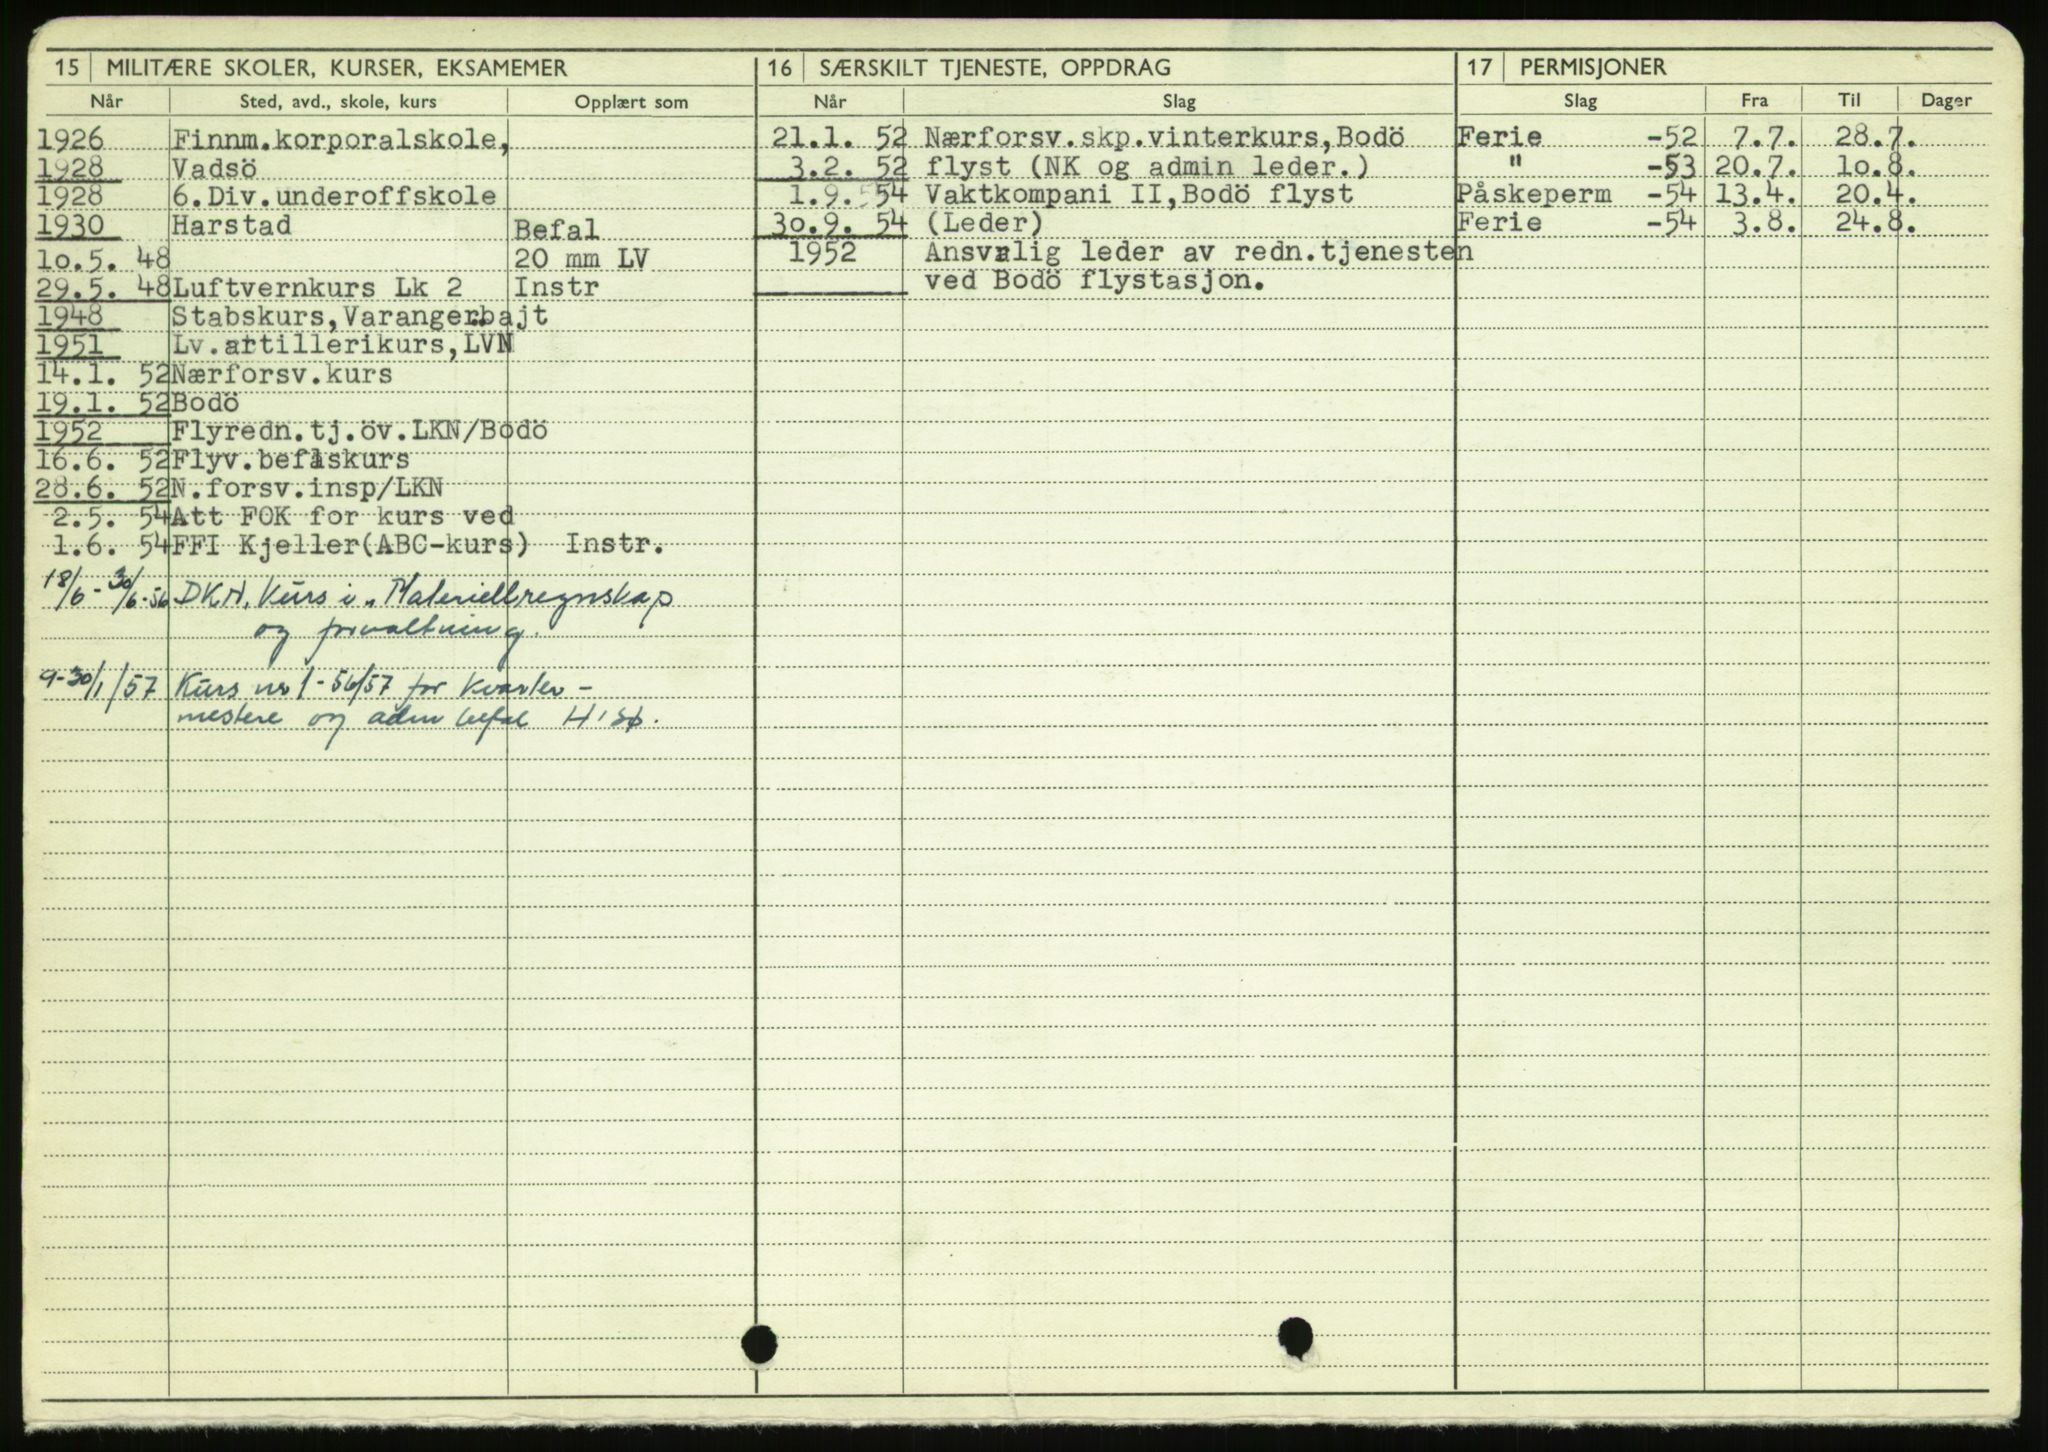 15 MILITÆRE SKOLER, KURSER, EKSAMEMER
Når Sted, avd., skole, kurs Opplært som
1926 Finnm.korporalskole,
1928 Vadsö
1928 6.Div.underoffskole
1930 Harstad Befal
10.5. 48 20 mm LV
29.5. 48 Luftvernkurs Lk 2 Instr
1948 Stabskurs,Varangerbajt
1951 Lv.artillerikurs,LVN
14.1. 52 Nærforsv.kurs
19.1. 52 Bodö
1952 Flyredn.tj.öv.LKN/Bodö
16.6. 52 Flyv.befalskurs
28.6. 52 N.forsv.insp/LKN
2.5. 54 Att FOK for kurs ved
1.6. 54 FFI Kjeller(ABC-kurs) Instr.
18/6-30/6-56 DKN. Kurs i Materiellregnskap
og forvaltning.
9-30/1/57 Kurs nr 1-56/57 for kvarter-
mestere og adm befal
16 SÆRSKILT TJENESTE, OPPDRAG
Når Slag
21.1. 52 Nærforsv.skp.vinterkurs,Bodö
3.2. 52 flyst (NK og admin leder.)
1.9. 54 Vaktkompani II,Bodö flyst
30.9. 54 (Leder)
1952 Ansvarlig leder av redn.tjenesten
ved Bodö flystasjon.
17 PERMISJONER
Slag Fra Til Dager
Ferie -52 7.7. 28.7.
" -53 20.7. 10.8.
Påskeperm -54 13.4. 20.4.
Ferie -54 3.8. 24.8.